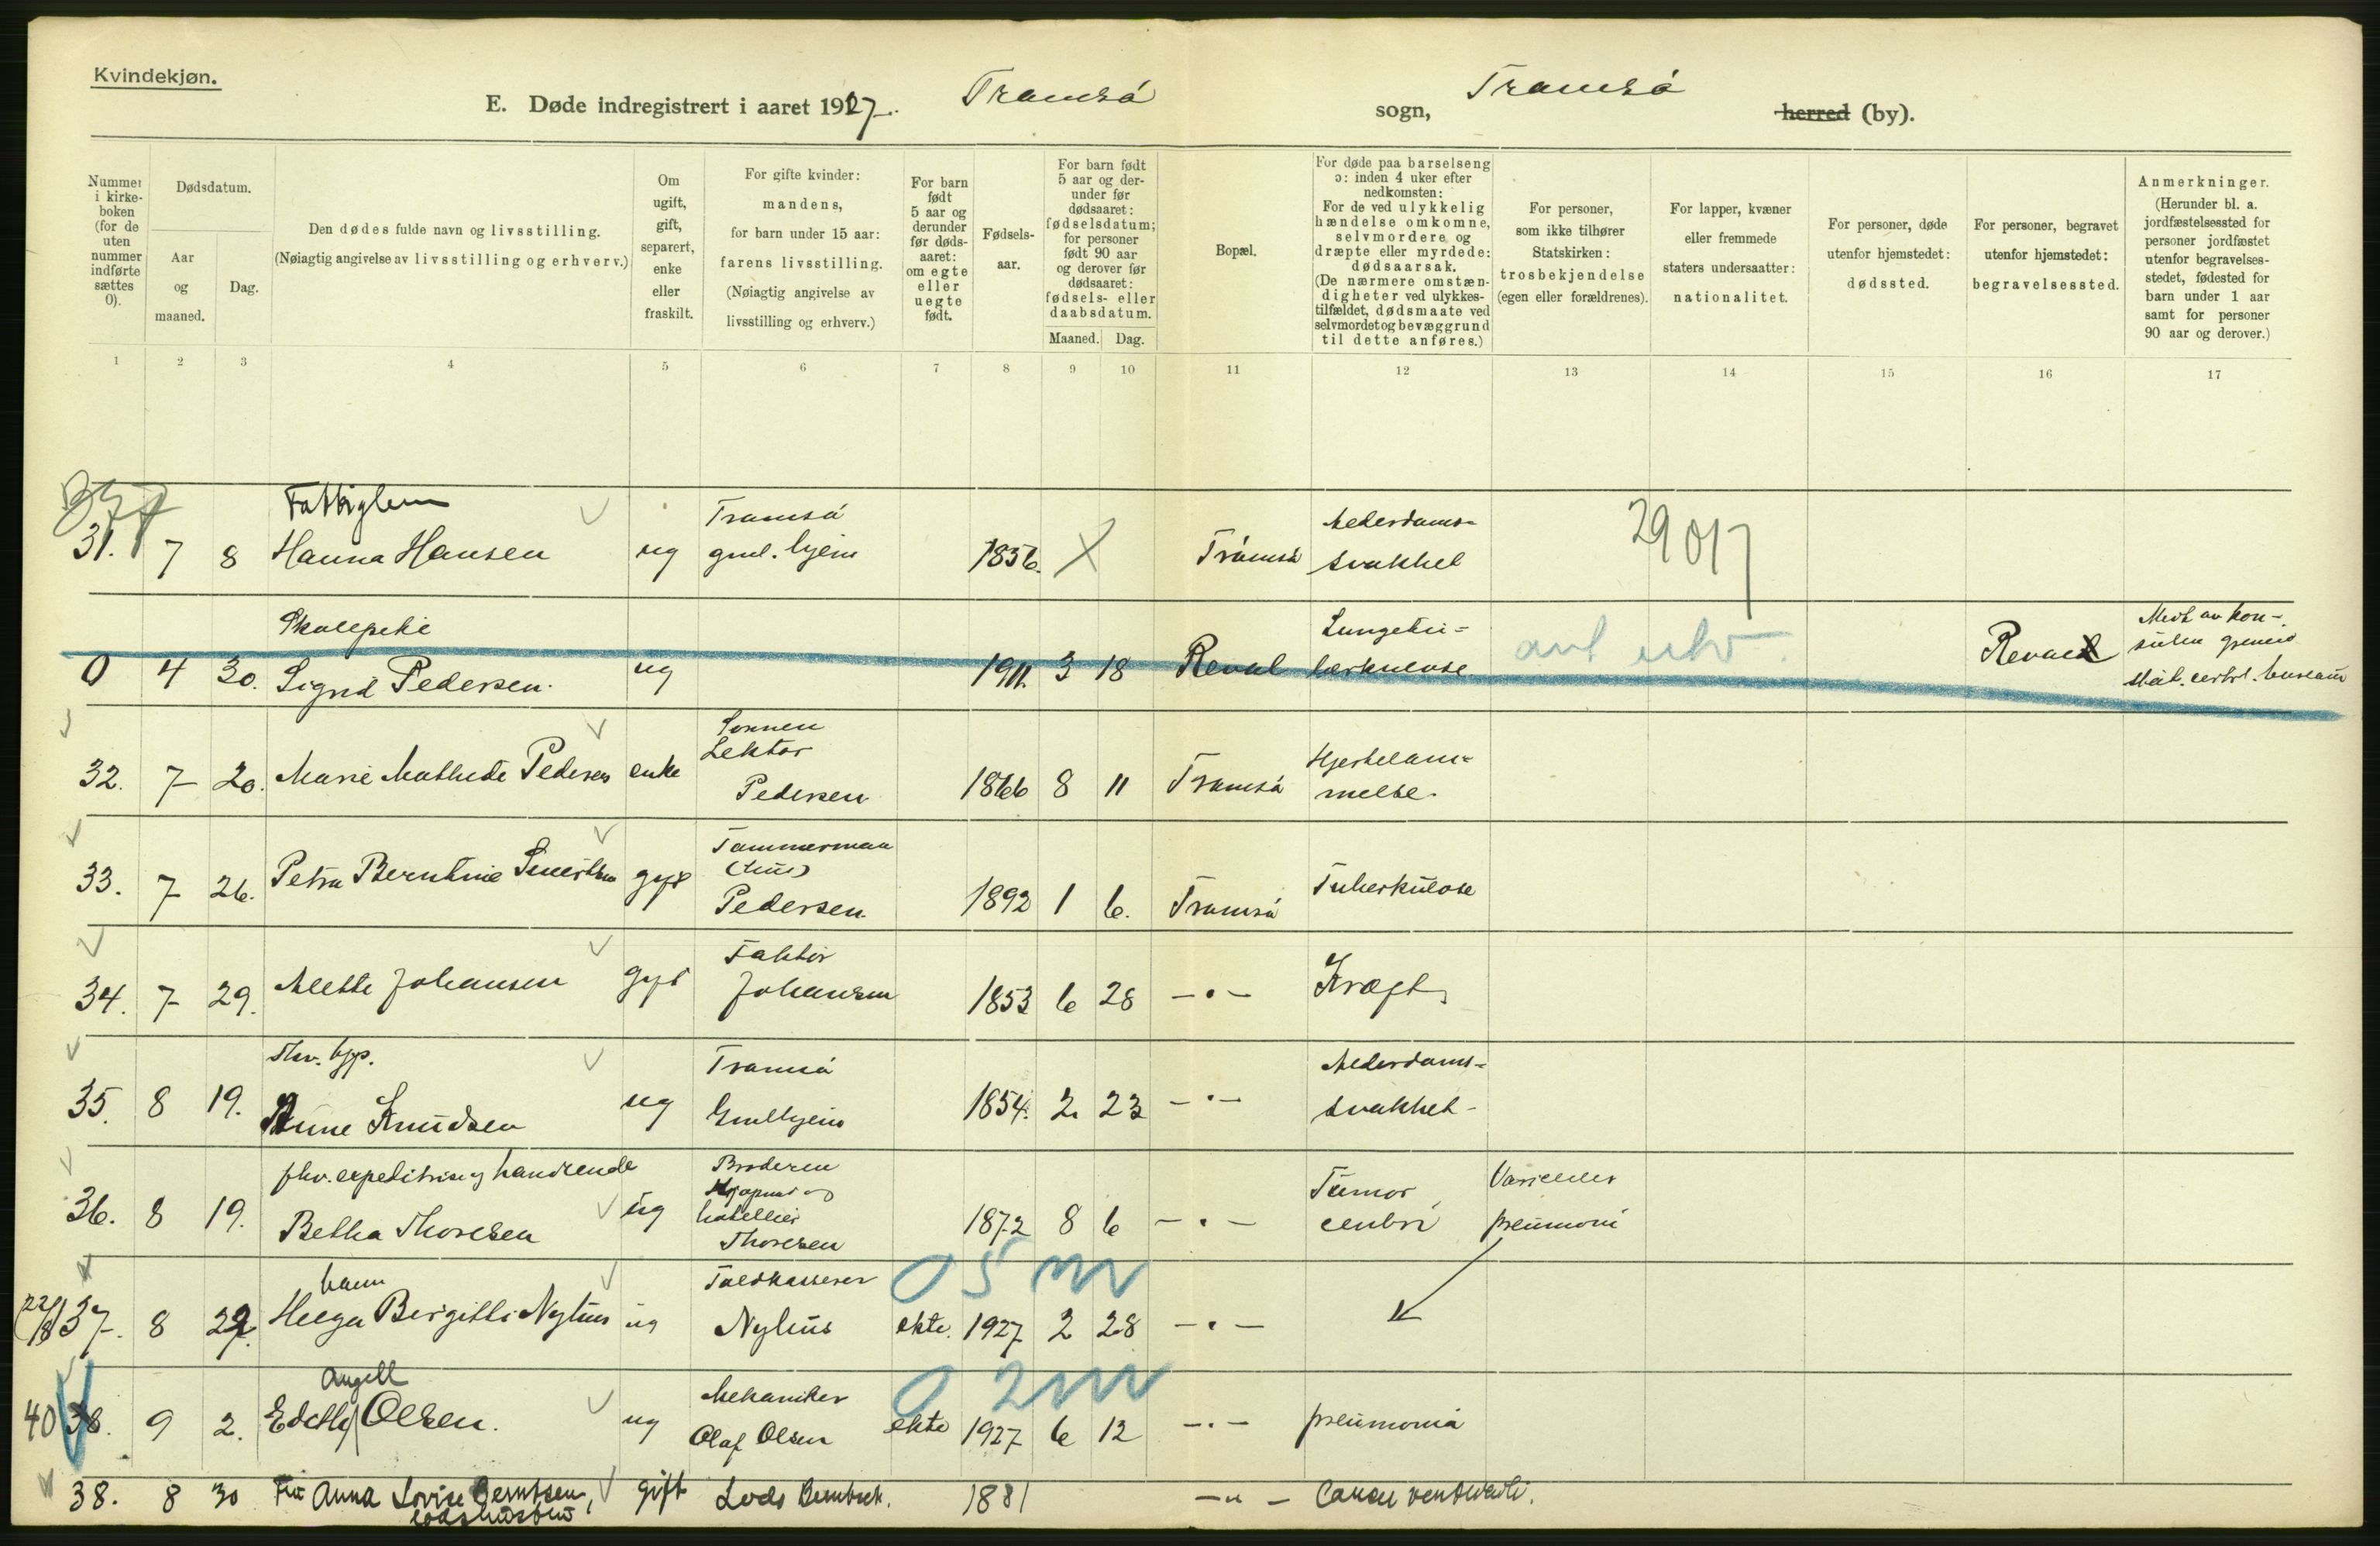 Kvindekjøn.
E. Døde indregistrert i aaret 1927. Tromsö sogn, Tromsö herred (by).
Nummer i kirke-boken (for de uten nummer indførte sættes 0).
Dødsdatum.
Aar og maaned.
Dag.
Den dødes fulde navn og livsstilling.
(Nøiagtig angivelse av livsstilling og erhverv.)
Om ugift, gift, separert, enke eller fraskilt.
For gifte kvinder: mandens, for barn under 15 aar: farens livsstilling.
(Nøiagtig angivelse av livsstilling og erhverv.)
For barn født 5 aar og derunder før døds-aaret: om egte eller uegte født.
Fødsels-aar.
For barn født 5 aar og der-under før dødsaaret: fødselsdatum; for personer født 90 aar og derover før dødsaaret: fødsels- eller daabsdatum.
Maaned. Dag.
Bopæl.
For døde paa barselseng ɔ: inden 4 uker efter nedkomsten:
For de ved ulykkelig hændelse omkomne, selvmordere og dræpte eller myrdede: dødsaarsak.
(De nærmere omstæn-digheter ved ulykkes-tilfældet, dødsmaate ved selvmordet og bevæggrund til dette anføres.)
For personer, som ikke tilhører Statskirken: trosbekjendelse (egen eller forældrenes).
For lapper, kvæner eller fremmede staters undersaatter: nationalitet.
For personer, døde utenfor hjemstedet: dødssted.
For personer, begravet utenfor hjemstedet: begravelsessted.
Anmerkninger.
(Herunder bl. a. jordfæstelsessted for personer jordfæstet utenfor begravelses-stedet, fødested for barn under 1 aar samt for personer 90 aar og derover.)
1 2 3 4 5 6 7 8 9 10 11 12 13 14 15 16 17
Fattiglem Tromsö Alderdoms=
31. 7 8 Hanna Hansen ug gml. hjem 1856. X Tromsö svakhet 29017
Skolepike Lungetu= Medt av kon-
0 4 30. Sigrid Pedersen. ug 1911. 3 18 Reval berkulose Reval
Sönnen
Lektor Hjertelam=
32. 7 20. Marie Mathilde Pedersen enke Pedersen 1866 8 11 Tromsö melse.
Tömmermann
33. 7 26. Petra Berntine gift Pedersen 1892 1 6. Tromsö Tuberkulose
Faktor
34. 7 29. Alette Johansen gift Johansen 1853 6 28 -"- Kræft
Tromsö Alderdoms-
35. 8 19. Anne Knudsen ug Gmlhjem 1854. 2. 23 -"- svakhet-
fhv. expeditrise handlende Broderen Tumor
36. 8 19. Betha Thoresen ug Thoresen 1872 8 6 -"- pneumoni
barn Toldkasserer 0 5 m
22/8 37. 8 29. Helga Bergitte Nyhus ug Nyhus ekte. 1927 2 28 -"-
Angell Mekaniker 0 2 m
40 38. 9 2. Edethy Olsen. ug Olaf Olsen ekte 1927 6 12 -"- pneumonia
38. 8 30 Fru Anna Lovise Berntsen, gift Lods Berntsen. 1881 -"- Cancer ventriculi.
lodshustru